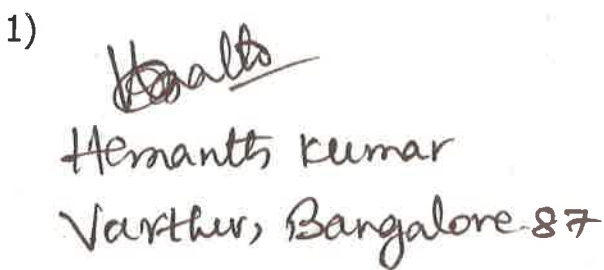 1)
Hemanth Kumar
Varthur, Bangalore-87